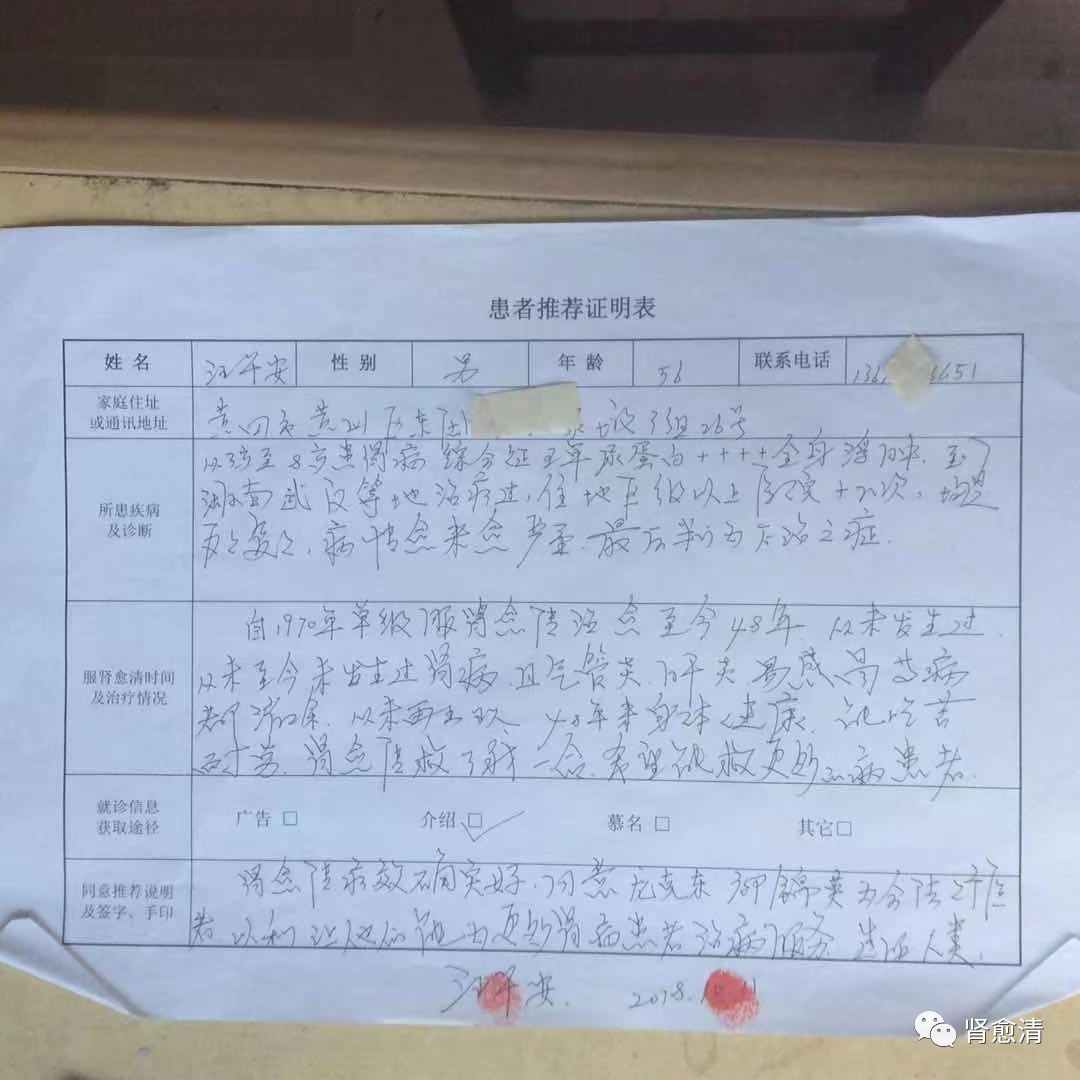 患者推荐证明表
姓 名 汪平安 性 别 男 年 龄 56 联系电话 136 6651
家庭住址
或通讯地址
黄冈市黄州区东 组26号
所患疾病
及诊断
从3岁至8岁患肾病综合征五年尿蛋白++++全身浮肿,至
湖南武汉等地治疗过,住地区级以上医院十n次,均是
反反复复,病情愈来愈严重,最后判为不治之症.
服肾愈清时间
及治疗情况
自1970年 服肾愈清治愈至今48年,从未发生过.
从未至今未发生过肾病,且气管炎,肝炎,易感冒等病
都消除,从未再出现,48年来身体健康,能吃苦
耐劳,肾愈清救了我一命,希望能救更多 病患者.
就诊信息
获取途径
广告□ 介绍□ ✓ 慕名□ 其它□
同意推荐说明
及签字、手印
肾愈清疗效确实好,同意 为合法
者,以利让他们能为更多肾病患者治病服务,造福人类.
汪平安. 2018.10.11
肾愈清